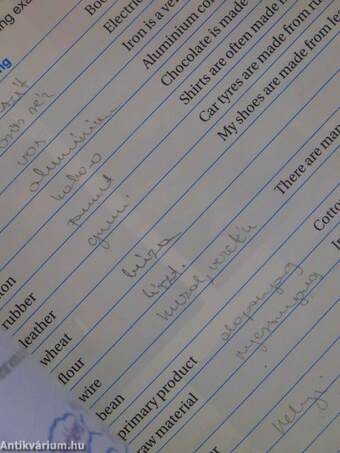 ng exa
Boo
Electri
Iron is a ve
Aluminium co
Chocolate is made
Shirts are often made
Car tyres are made from ru
My shoes are made from le
There are man
Cotto
ng
vas
aluminium
kakaó
pamut
gumi
búza
liszt
huzal, vezeték
alapanyag
nyersanyag
ton
rubber
leather
wheat
flour
wire
bean
primary product
raw material
er
Antikvárium.hu